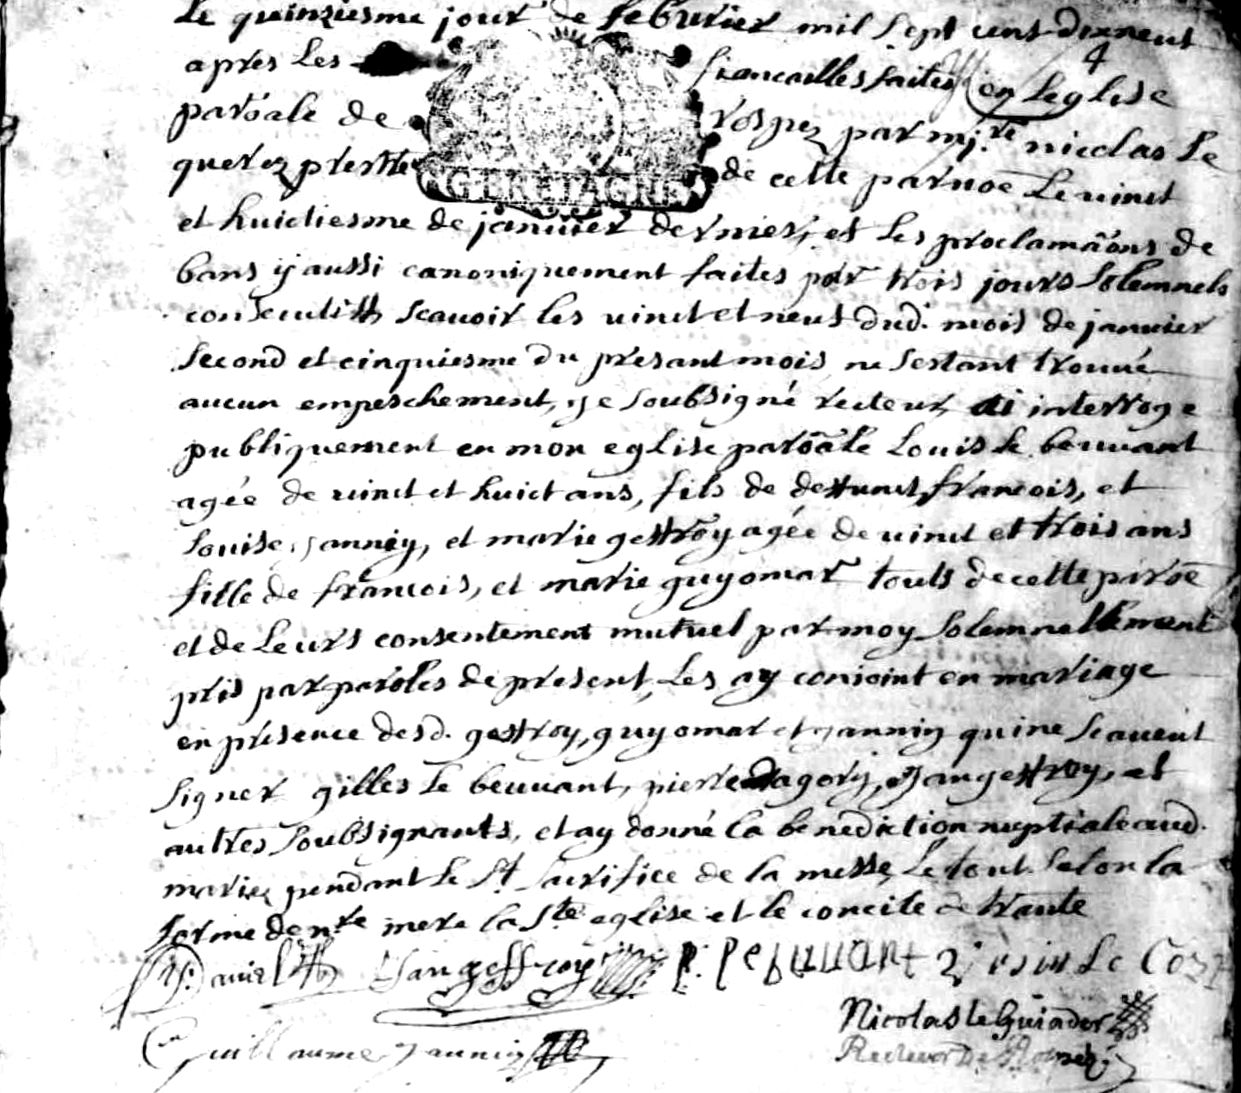 Le quinziesme jour de febvrier mil sept cent dixneuf
4
apres les fiancailles faites en Leglise
paroâle de rospez par mi.re nicolas Le
querez prestre de cette paroê Le vinct
BRETAGNE
et huictiesme de janvier dernier, et les proclamâons de
bans y aussi canoniquement faites par trois jours solemnels
consecutiffs scavoir les vinct et neuf dud. mois de janvier
second et cinquiesme du presant mois ne sestant trouvé
aucun empeschement, je soubsigné recteur ai interrogé
publiquement en mon eglise paroâle Louis le beuvant
agée de vinct et huict ans, fils de deffunct francois, et
Louise jannin, et marie geffroy agée de vinct et trois ans
fille de francois, et marie guyomar touts de cette paroê
et de Leurs consentement mutuel par moy solemnellement
pris par paroles de present, Les ay conioint en mariage
en présence desd. geffroy, guyomar et jannin qui ne scavent
signer gilles le beuvant, pierre dagorn, jan geffroy, et
autres soubsignants, et ay donné la benediction nuptiale aud.
mariez pendant le St sacrifice de la messe, Le tout selon la
forme de nre mere la Ste eglise et le concile de trante
Daniel Jan geffroy Le Coz
Nicolas le Guiader
Guillaume Jannin Recteur De Rospez